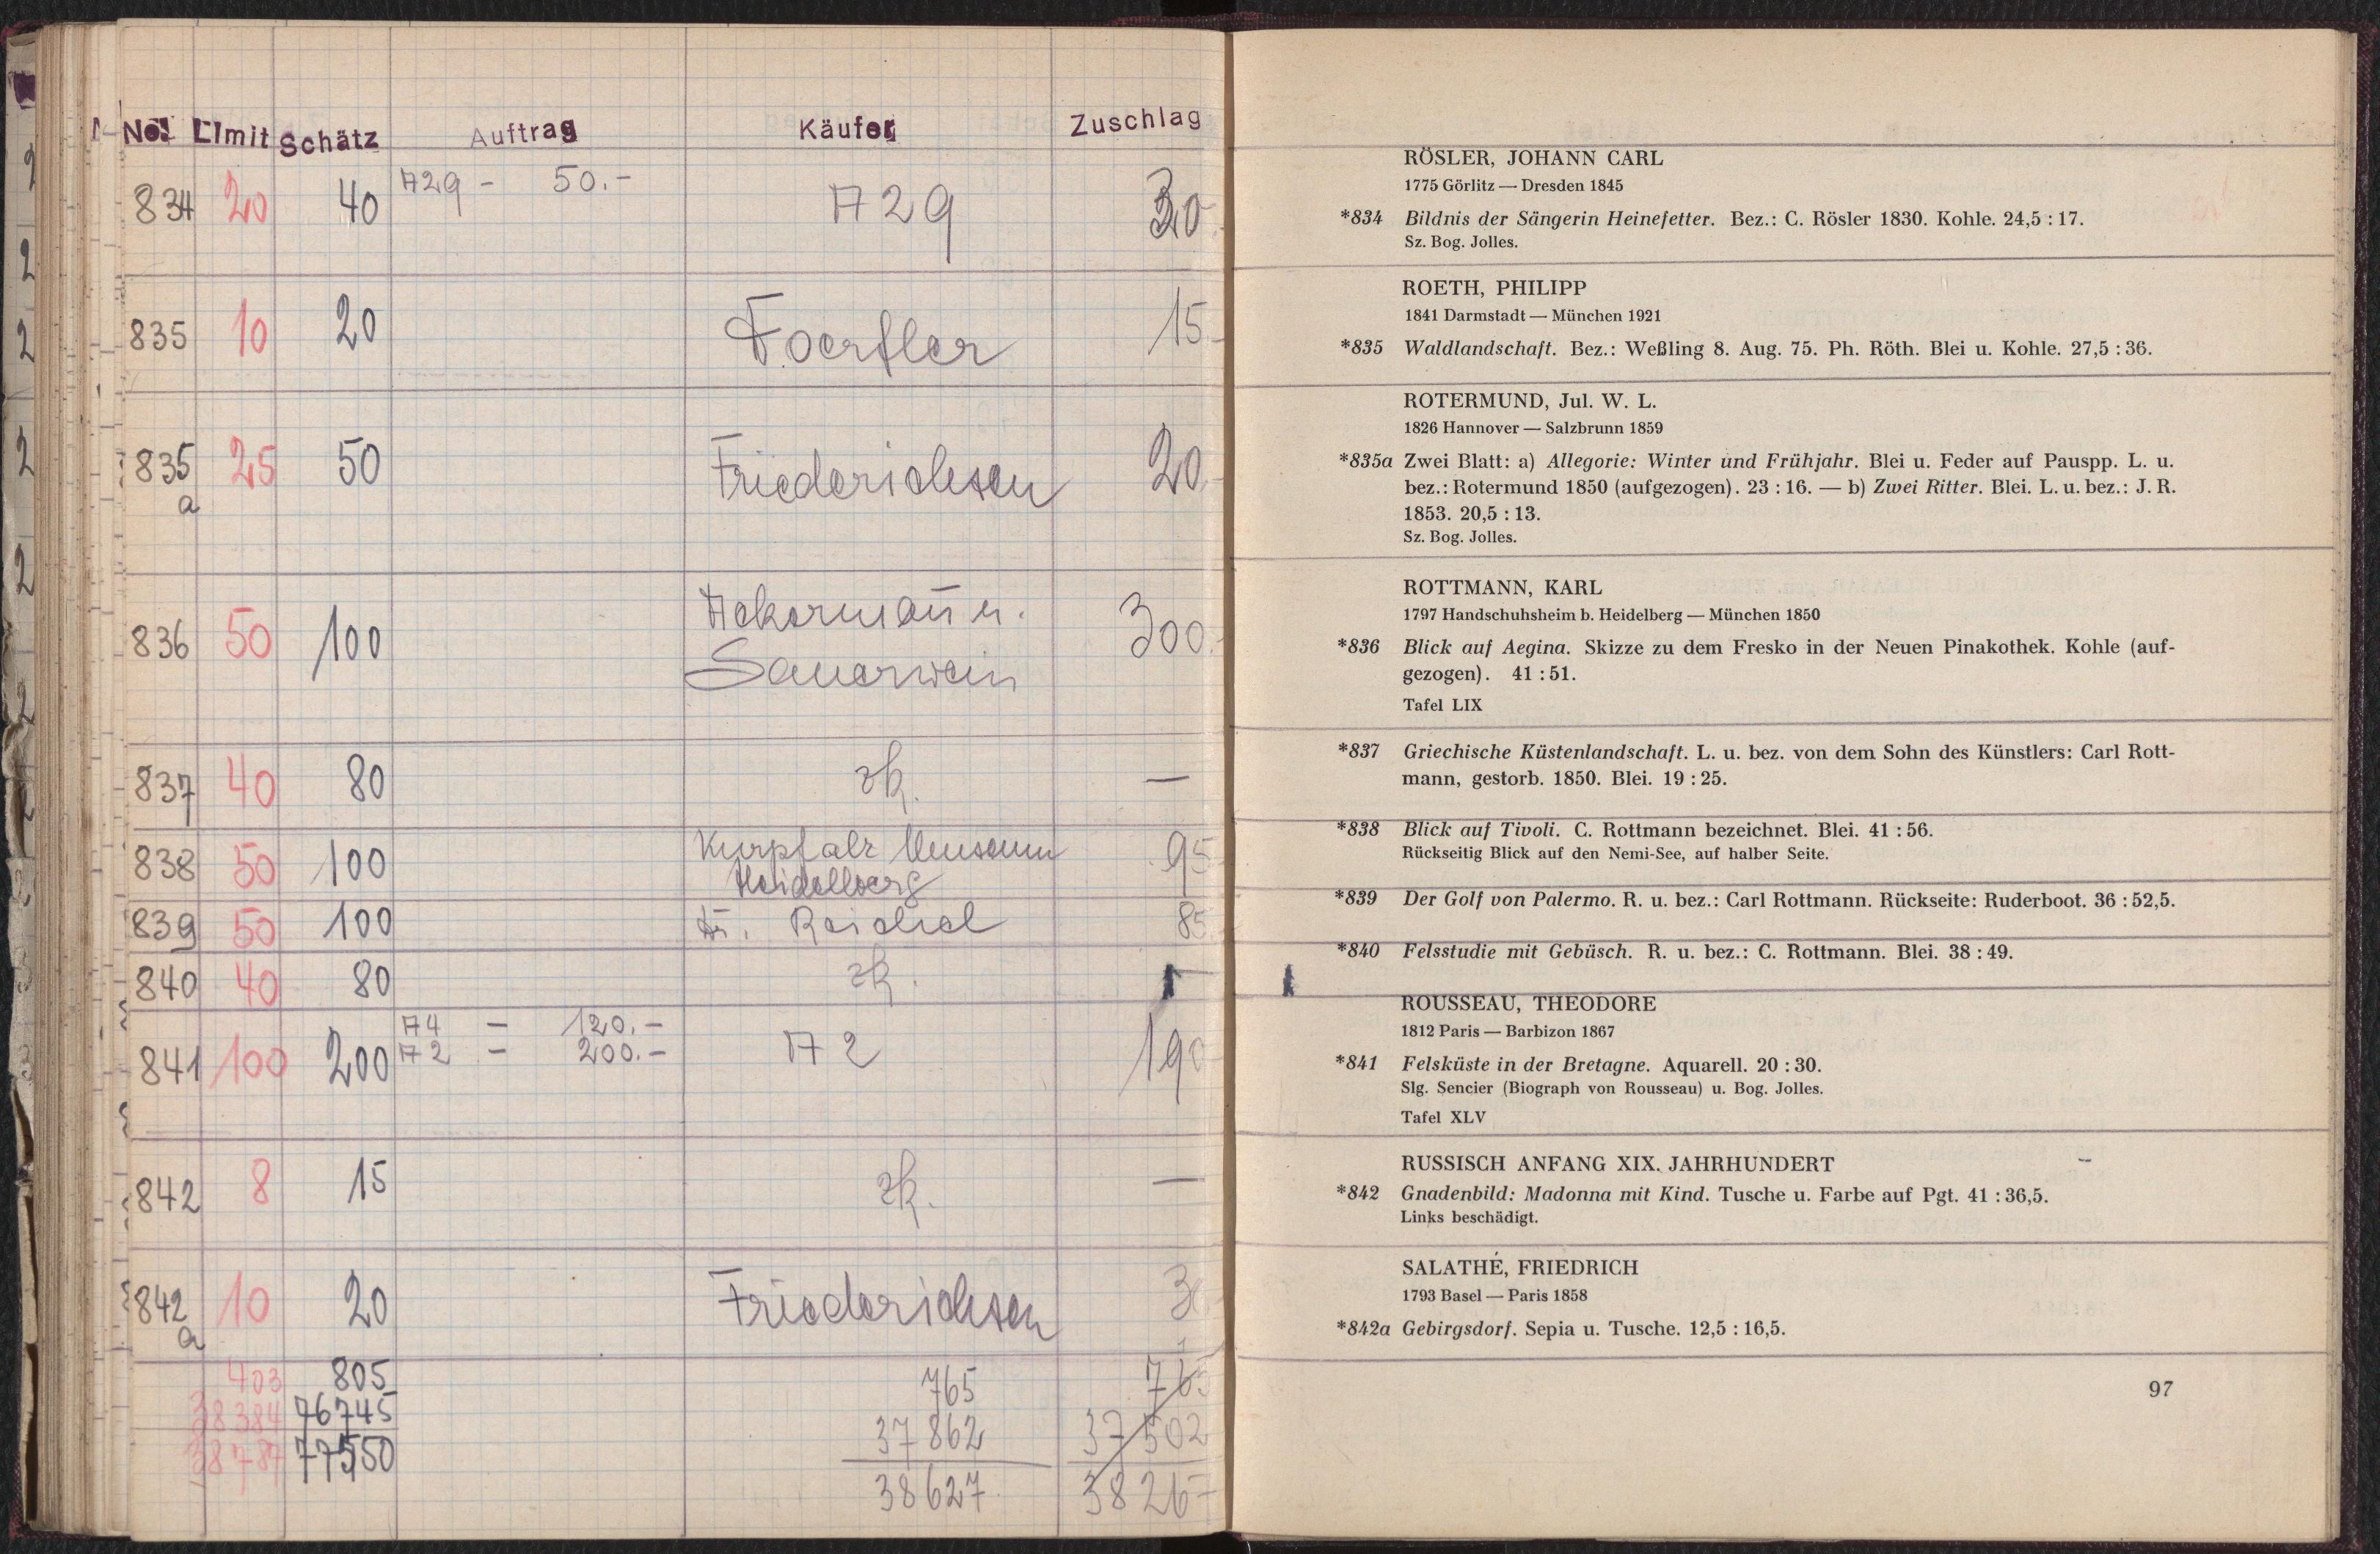 No. Limit Schätz Auftrag Käufer Zuschlag
834 20 40 A29 - 50.- A29 30
835 10 20 Foerster 15.-
835a 25 50 Friederichsen 20.-
836 50 100 Ackermann u. Sauerwein 300.-
837 40 80 zk. —
838 50 100 Kurpfalz Museum Heidelberg 95
839 50 100 Dr. Reichel 85
840 40 80 zk. -
841 100 200 A4 - 120.- A2 190
A2 - 200.-
842 8 15 zk. —
842a 10 20 Friederichsen 30
403 805 765 765
38384 76745 37862 37502
38787 77550 38627 3826
RÖSLER, JOHANN CARL
1775 Görlitz — Dresden 1845
*834 Bildnis der Sängerin Heinefetter. Bez.: C. Rösler 1830. Kohle. 24,5 : 17.
Sz. Bog. Jolles.
ROETH, PHILIPP
1841 Darmstadt — München 1921
*835 Waldlandschaft. Bez.: Weßling 8. Aug. 75. Ph. Röth. Blei u. Kohle. 27,5 : 36.
ROTERMUND, Jul. W. L.
1826 Hannover — Salzbrunn 1859
*835a Zwei Blatt: a) Allegorie: Winter und Frühjahr. Blei u. Feder auf Pauspp. L. u.
bez.: Rotermund 1850 (aufgezogen). 23 : 16. — b) Zwei Ritter. Blei. L. u. bez.: J. R.
1853. 20,5 : 13.
Sz. Bog. Jolles.
ROTTMANN, KARL
1797 Handschuhsheim b. Heidelberg — München 1850
*836 Blick auf Aegina. Skizze zu dem Fresko in der Neuen Pinakothek. Kohle (auf-
gezogen). 41 : 51.
Tafel LIX
*837 Griechische Küstenlandschaft. L. u. bez. von dem Sohn des Künstlers: Carl Rott-
mann, gestorb. 1850. Blei. 19 : 25.
*838 Blick auf Tivoli. C. Rottmann bezeichnet. Blei. 41 : 56.
Rückseitig Blick auf den Nemi-See, auf halber Seite.
*839 Der Golf von Palermo. R. u. bez.: Carl Rottmann. Rückseite: Ruderboot. 36 : 52,5.
*840 Felsstudie mit Gebüsch. R. u. bez.: C. Rottmann. Blei. 38 : 49.
ROUSSEAU, THEODORE
1812 Paris — Barbizon 1867
*841 Felsküste in der Bretagne. Aquarell. 20 : 30.
Slg. Sencier (Biograph von Rousseau) u. Bog. Jolles.
Tafel XLV
RUSSISCH ANFANG XIX. JAHRHUNDERT
*842 Gnadenbild: Madonna mit Kind. Tusche u. Farbe auf Pgt. 41 : 36,5.
Links beschädigt.
SALATHÉ, FRIEDRICH
1793 Basel — Paris 1858
*842a Gebirgsdorf. Sepia u. Tusche. 12,5 : 16,5.
97